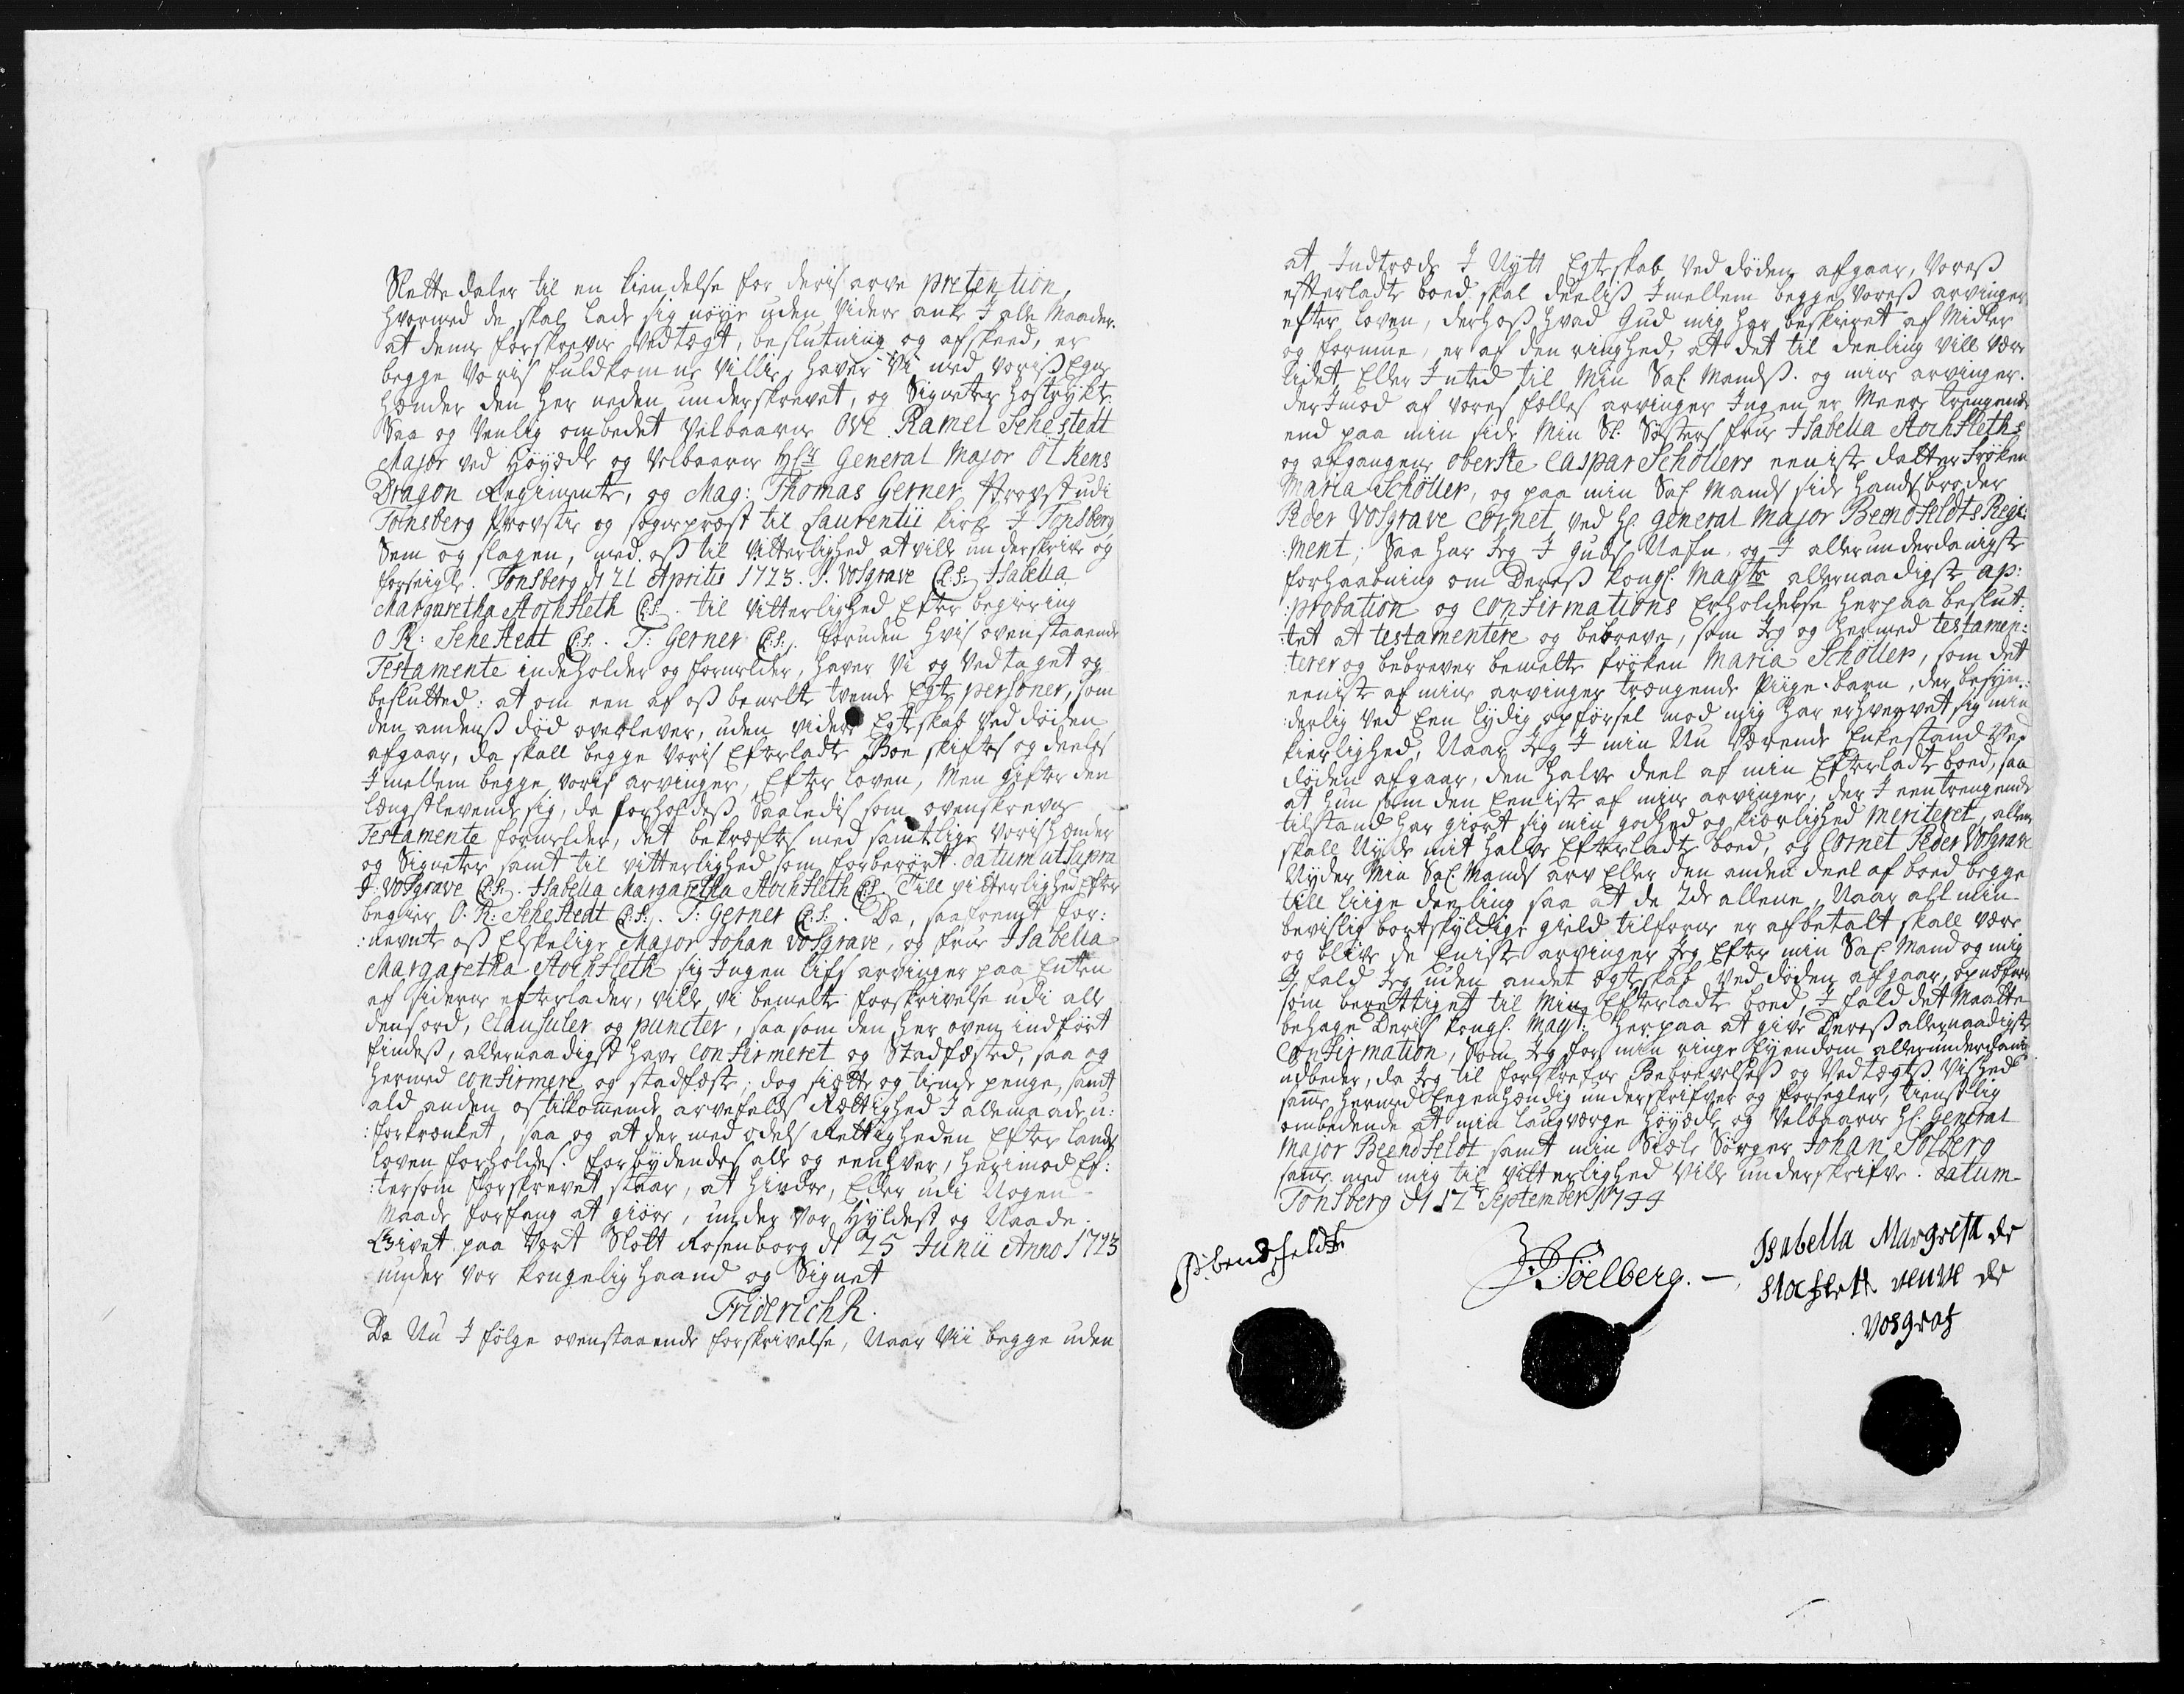 Slette daler til en kiendelse for deris arve pretention,
hvormed de skal lade sig nøye uden videre anke I alle Maader.
at denne forskrevne Vedtægt, beslutning og afskeed, er
begge Voris fuldkomne Villie, haver Vi med Voris Egne
Hænder den her neden underskrevet, og Signeter hostrykt.
Saa og Venlig ombedet Velbaarne Ove Ramel Sehestedt
Major ved Høyædle og Velbaarne Hr General Major Ötkens
Dragon Regimente, og Mag: Thomas Gerner Provst udi
Tönsberg Provstie og sogneprest til Laurentii kirke I Tonsberg
Sem og slagen, med os til Vitterlighed at ville underskrive og
forseigle. Tonsberg d 21 Aprilis 1723. J. Vosgrave (L.S.) Isabella
Margaretha Stochfleth (L.S.). til Vitterlighed Efter begiering
O R: Sehestedt (L.S.). T: Gerner (L.S.). foruden hvis ovenstaaende
Testamente indeholder og formelder, haver Vi og Vedtaget og
besluttet: at om een af oß bemelte tvende Egte personer, som
den andenß død overlever, uden videre Egteskab ved døden
afgaar, da skall begge Voris Efterladte Boe skiftes og deeles
Imellem begge Voris arvinger, Efter loven, Men gifter den
længstlevende sig, da forholdeß Saaledis som ovenskrevne
Testamente formelder, det bekræftes med samtlige Voris hænder
og Signeter samt til vitterlighed som forberørt. datum ut supra
J: Vosgrave (L.S.). Isabella Margaretha Stochfleth (L.S.). Till vitterlighed Efter
begier O. R: Sehestedt (L.S.). T: Gerner (L.S.). Da, saafremt for:
:nevnte oß Elskelige Major Johan Vosgrave, og frue Isabella
Margaretha Stochfleth sig Ingen lifs arvinger paa Enten
af siderne efterlader, ville vi bemelte forskrivelse udi alle
dens ord, Clausuler og puncter, saa som den her oven indført
findeß, allernaadigst have Confirmeret og Stadfæsted, saa og
hermed Confirmere og stadfæste; dog siette og tiende penge, samt
ald anden os tilkommende arvefalds Rettighed I allemaade u:
:forkrænket, saa og at der med odels Rettigheden Efter lands
loven forholdes. forbydendes alle og eenhver, herimod Ef:
:tersom forskrevet staar, at hindre, Eller udi Nogen
Maade forfang at giøre, under Vor Hyldest og Naade.
Givet paa Vort Slott Rosenborg d 25 Junii Anno 1723
under Vor Kongelig haand og Signet
Friderich R.
Da Nu I følge ovenstaaende forskrivelse, Naar Vii begge uden
at Indtræde I Nytt Egteskab ved døden afgaar, Voreß
efterladte boed skal deeliß Imellem begge Voreß arvinger
efter loven, derhoß hvad Gud mig har beskieret af Midler
og formue, er af den ringhed, at det til deeling vill være
lidet Eller Inted til Min Sal Mandß og mine arvinger.
der Imod af Vores fælles arvinger Ingen er Meere trengende
end paa min side Min Sl: Søsters frue Isabella Stochfleths
og afgangne Oberste Caspar Schöllers eeniste datter Frøken
Maria Schöller, og paa min Sal Mands side hands broder
Peder Vosgrave Cornet ved Hr General Major Beendfeldts Regi:
:ment; Saa har Jeg I guds Nafn og I allerunderdanigste
forhaabning om Dereß Kongl. Maytz allernaadigste ap:
:probation og Confirmations Erholdelse herpaa beslut:
:tet at testamentere og bebreve, som Jeg og hermed testamen:
:terer og bebrever bemelte frøken Maria Schöller, som det
eeniste af mine arvinger trængende Piige-barn, der besyn:
:derlig ved Een lydig opførsel mod mig har erhvervet sig min
kierlighed, Naar Jeg I min Nu Værende Enkestand Ved
døden afgaar, den halve deel af min Efterladte boed, saa
at hun som den Eeniste af mine arvinger, der I een trengende
tilstand har giort sig min godhed og kierlighed meriteret, allene
skall Nyde mit halve Efterladte boed, og Cornet Peder Vosgrave
Nyder Min Sal Mands arv Eller den anden deel af boed begge
till liige deeling saa at de 2de allene, Naar all min
bevislig bortskyldige gield tilforne er afbetalt skall være
og blive de Eniste arvinger Jeg Efter min Sal Mand og mig
I fald Jeg uden andet Egteskab Ved døden afgaar, opnæfner
som berettiget til Min Efterladte boed, I fald det Maatte
behage Deris Kongl. Mayt: herpaa at give Dereß allernaadigste
Confirmation, Som Jeg for min ringe Eyendom allerunderdanigst
udbeder, da Jeg til forskrefne Bebrevelseß og Vedtægtß Vished
samme hermed Eegenhændig underskrifver og forsegler, tienstlig
ombedende at min laugværge Høyædle og Velbaarne Hr General
Major Beendfeldt samt min Siæle Sørger Johan Sølberg
samme med mig til vitterlighed ville underskrifve. Datum
Tönsberg d 12te September 1744
P: bendfeldt
J. Söelberg.
Isabella Margreta de
stochflett venve de
Vosgraf